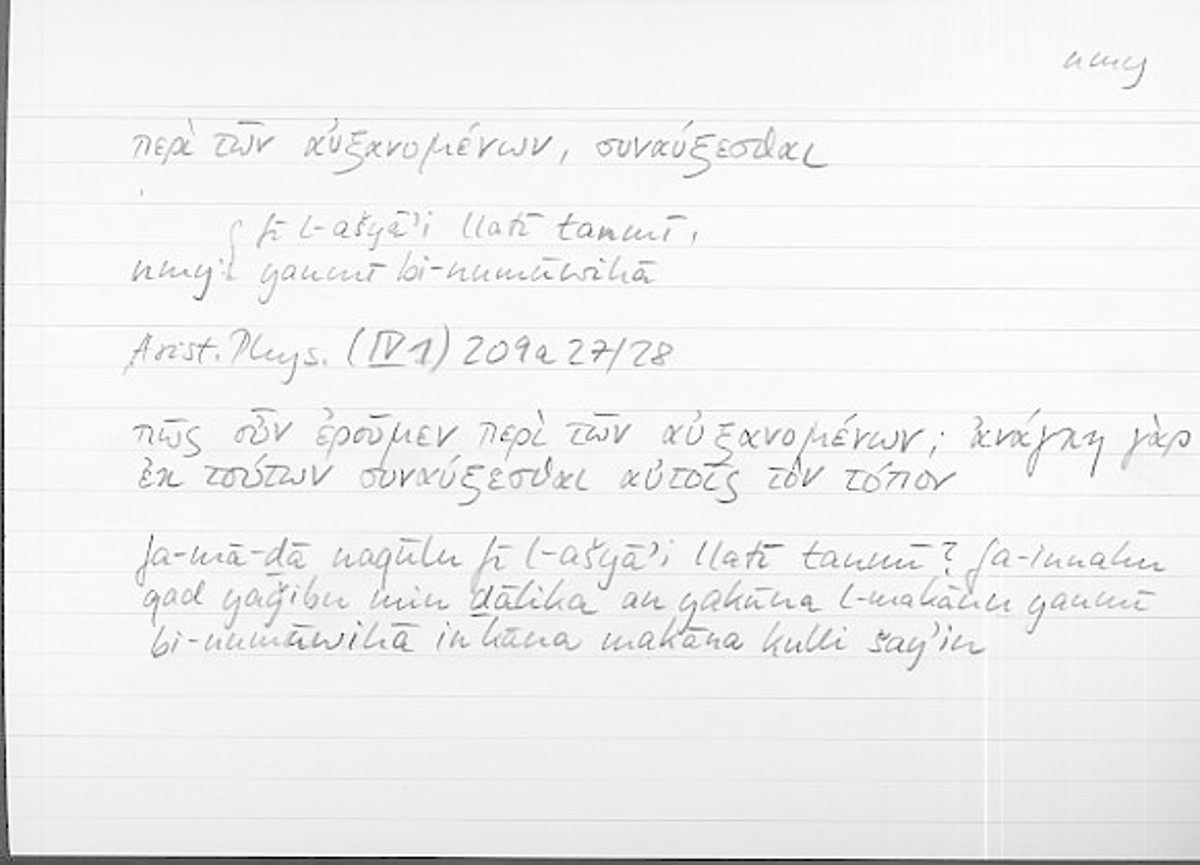 nmy
περὶ τῶν αὐξανομένων, συναύξεσθαι
fī l-ašyā’i llatī tanmī,
nmy: yanmī bi-numūwihā
Arist. Phys. (IV 1) 209a 27/28
πῶς οὖν ἐροῦμεν περὶ τῶν αὐξανομένων; ἀνάγκη γὰρ
ἐκ τούτων συναύξεσθαι αὐτοῖς τὸν τόπον
fa-mā-ḏā naqūlu fī l-ašyā’i llatī tanmī? fa-innahu
qad yaǧibu min ḏālika an yakūna l-makānu yanmī
bi-numūwihā in kāna makāna kulli šay’in